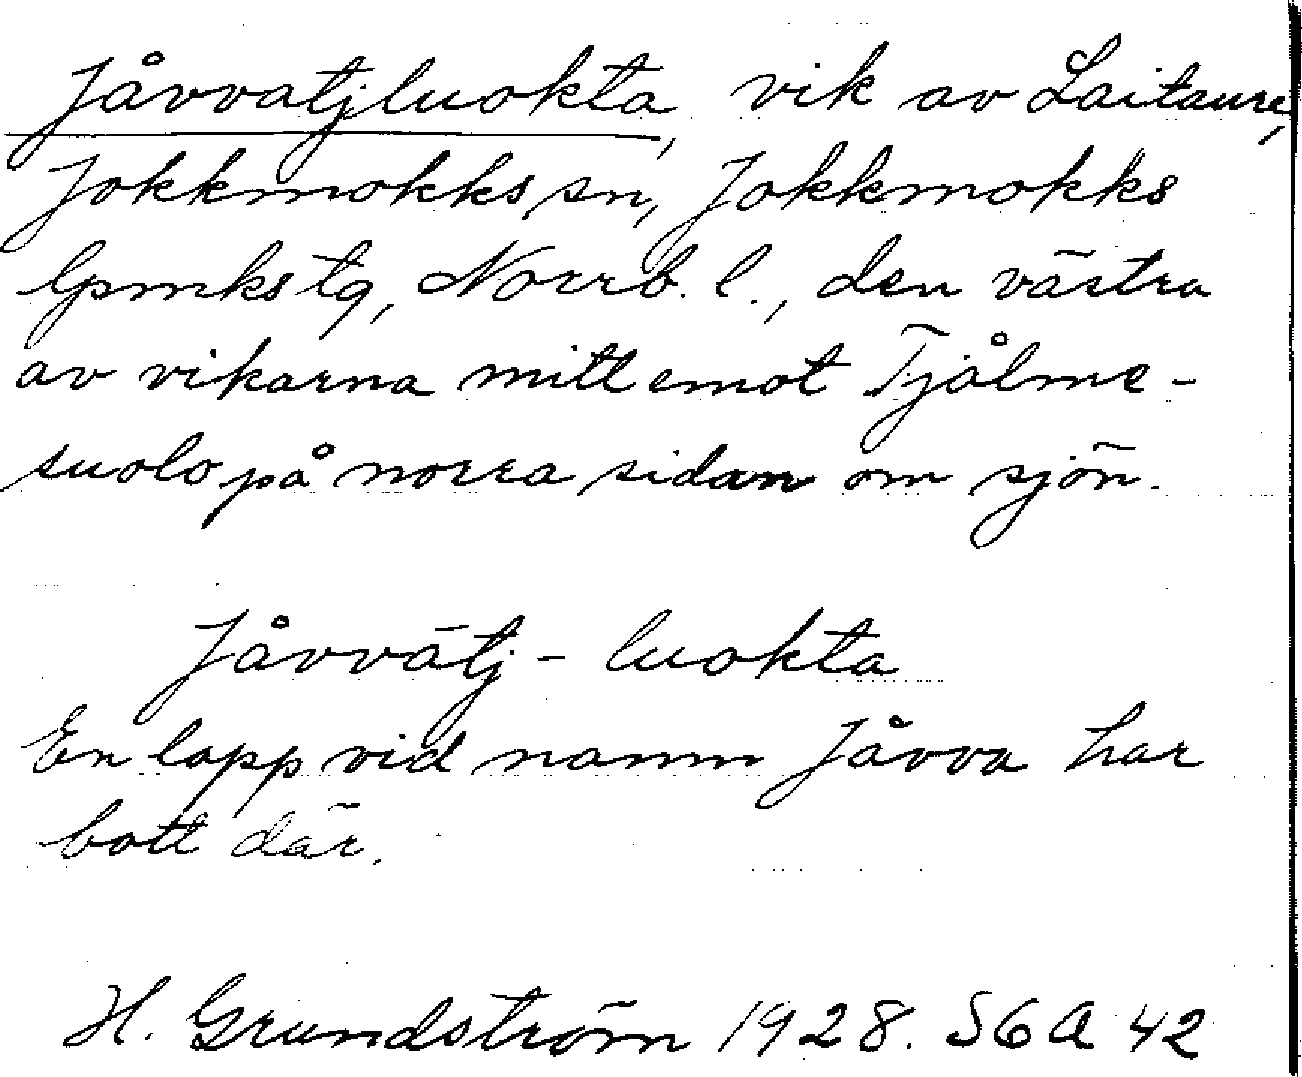 Jåvvatjluokta, vik av Laitaure,
Jokkmokks sn, Jokkmokks
lpmks tg, Norrb. l., den västra
av vikarna mitt emot Tjålme-
suolo på norra sidan om sjön.
Jåvvātj - luokta
En lapp vid namn Jåvva har
bott där.
H. Grundström 1928. S6A 42